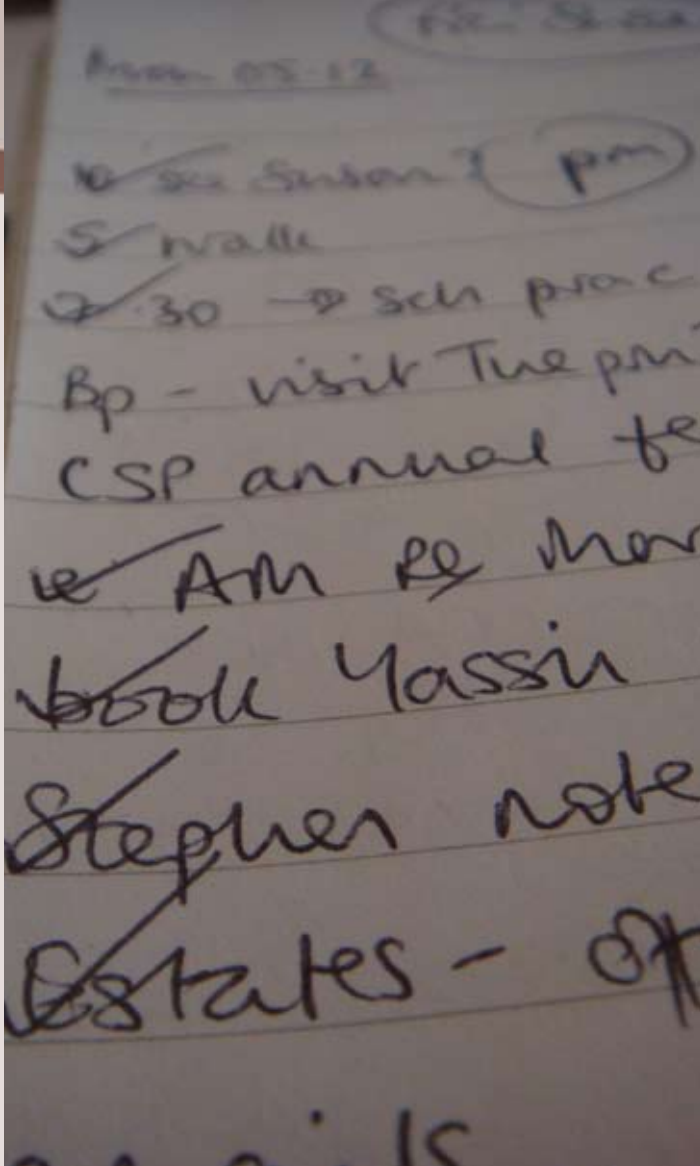 05.12
see Susan? pm
5 walk
7.30 → sch prac
Bp - visit Tue pm
CSP annual fe
AM re Mar
book Yassin
Stephen note
Estates - of